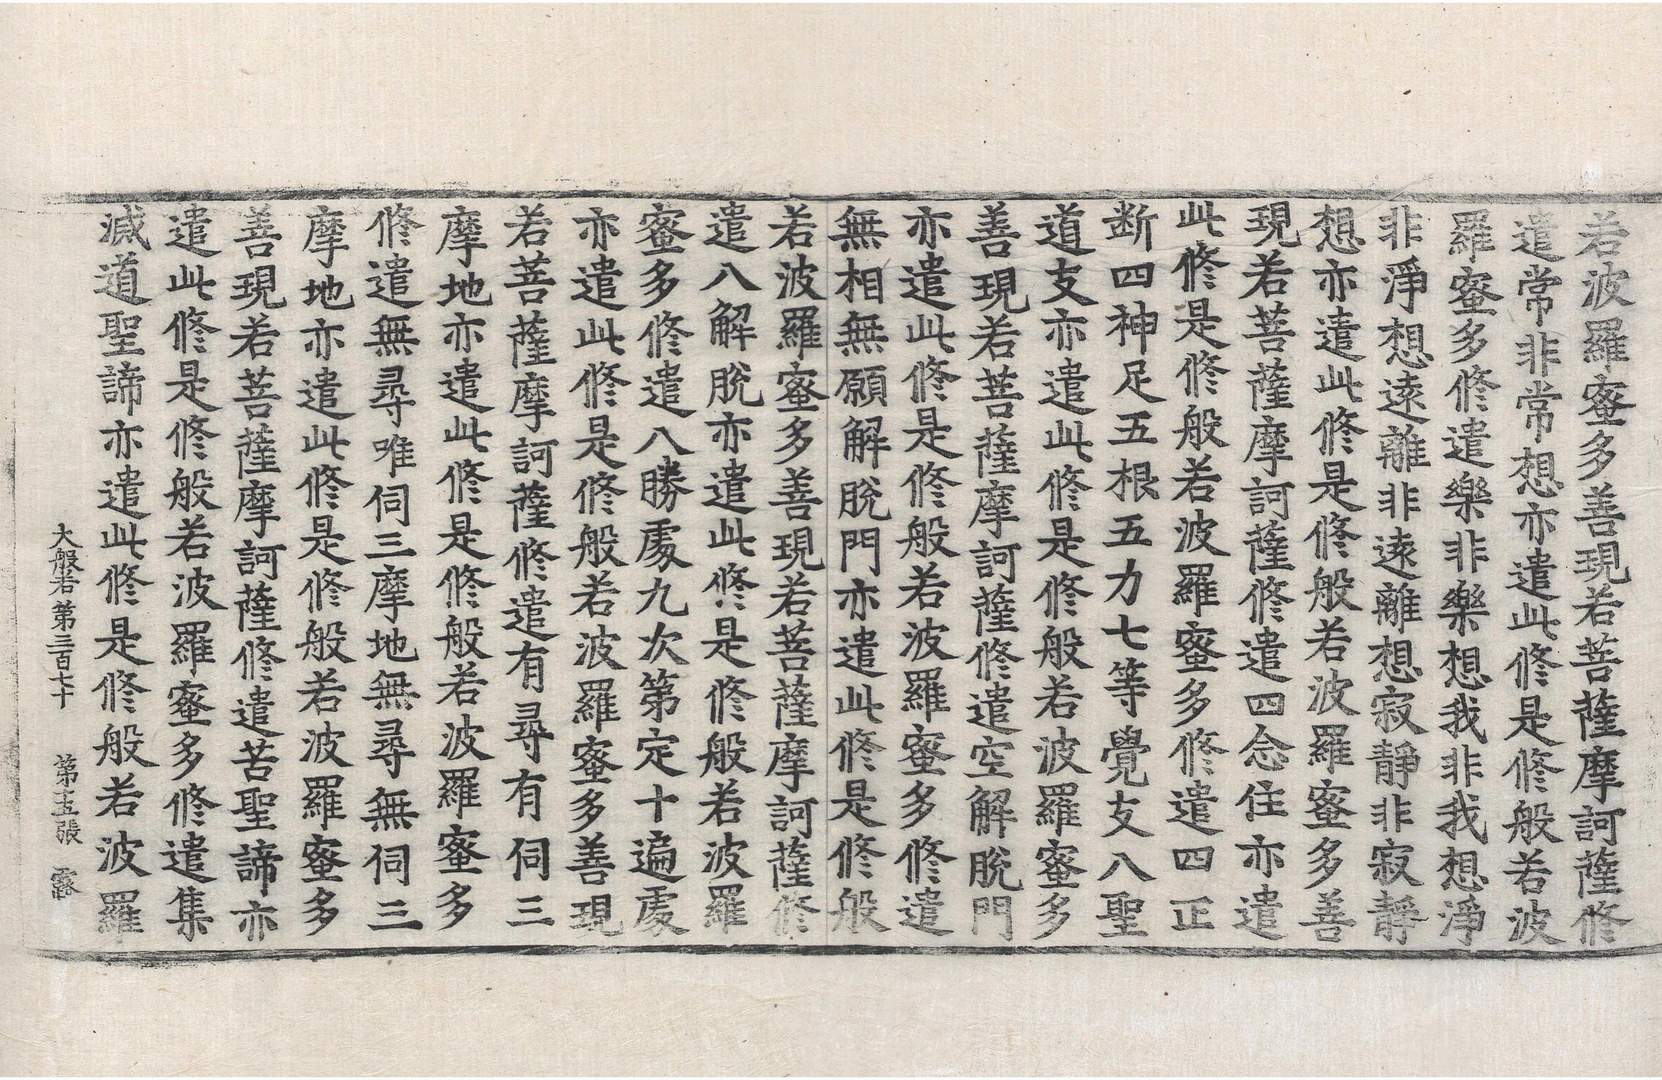 若波羅蜜多善現若菩薩摩訶薩修
遣常非常想亦遣此修是修般若波
羅蜜多修遣樂非樂想我非我想淨
非淨想遠離非遠離想寂靜非寂靜
想亦遣此修是修般若波羅蜜多善
現若菩薩摩訶薩修遣四念住亦遣
此修是修般若波羅蜜多修遣四正
断四神足五根五力七等覺支八聖
道支亦遣此修是修般若波羅蜜多
善現若菩薩摩訶薩修遣空解脫門
亦遣此修是修般若波羅蜜多修遣
無相無願解脫門亦遣此修是修般
若波羅蜜多善現若菩薩摩訶薩修
遣八解脫亦遣此修是修般若波羅
蜜多修遣八勝處九次第定十遍處
亦遣此修是修般若波羅蜜多善現
若菩薩摩訶薩修遣有尋有伺三
摩地亦遣此修是修般若波羅蜜多
修遣無尋唯伺三摩地無尋無伺三
摩地亦遣此修是修般若波羅蜜多
善現若菩薩摩訶薩修遣苦聖諦亦
遣此修是修般若波羅蜜多修遣集
滅道聖諦亦遣此修是修般若波羅
大般若第三百七十 第十五張 露